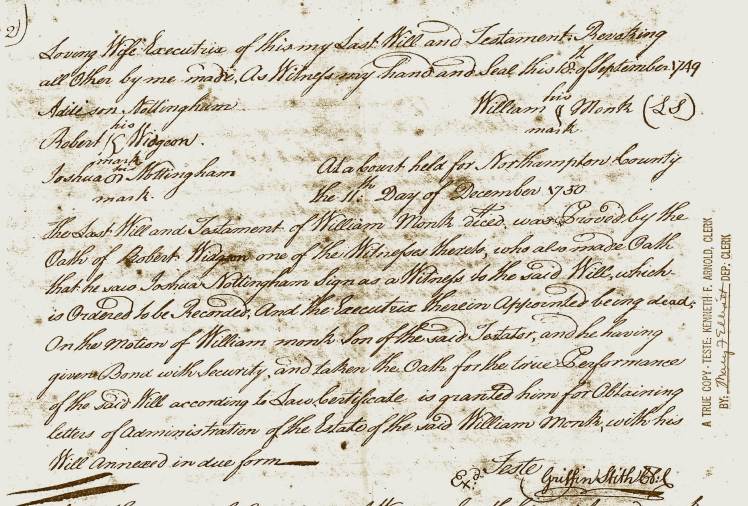 2)
Loving Wife Executrix of this my Last Will and Testament Revoking
all Other by me made, As Witness my hand and Seal this 8th of September 1749
Addison Nottingham
William his mark Monk (LS)
Robert his mark Widgeon.
Joshua his mark Nottingham
At a Court held for Northampton County
the 11th Day of December 1750
The Last Will and Testament of William Monk dec'ed was Proved by the
Oath of Robert Widgeon one of the Witnesses thereto, who also made Oath
that he saw Joshua Nottingham Sign as a Witness to the said Will, which
is Ordered to be Recorded, And the Executrix therein Appointed being dead,
On the Motion of William monk Son of the said Testator, and he having
given Bond with Security, and taken the Oath for the true Performance
of the said Will according to Law Certificate is granted him for Obtaining
letters of Administration of the Estate of the said William Monk, with his
Will Annexed in due form
Teste
Griffin Stith
A TRUE COPY - TESTE: KENNETH F. ARNOLD, CLERK
BY: DEP. CLERK